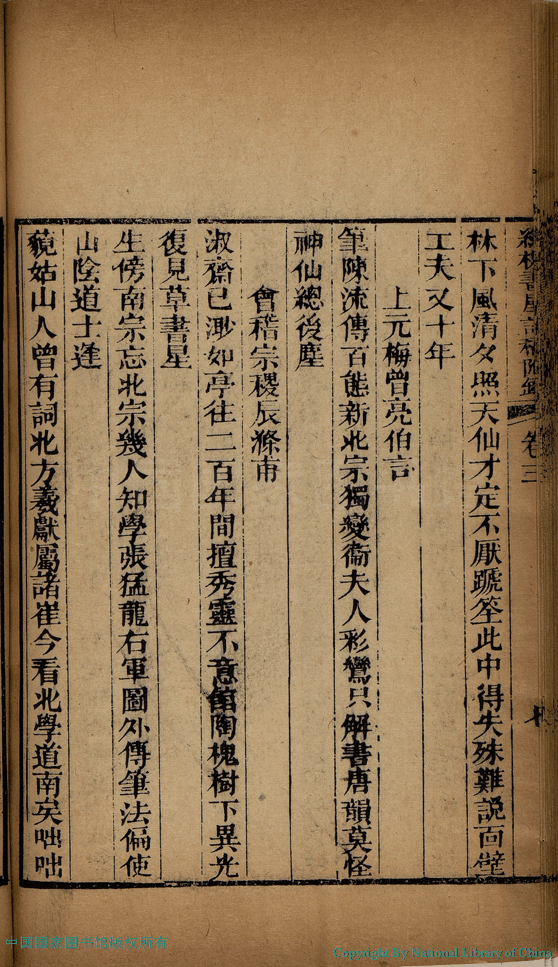 卷三
林下風清夕照天仙才定不厭蹏筌此中得失殊難説面壁
工夫又十年
上元梅曾亮伯言
筆陳流傳百態新北宗獨變衞夫人彩鸞只解書唐韻莫怪
神仙總後塵
會稽宗稷辰滌甫
淑齋已渺如亭往二百年間擅秀靈不意館陶槐樹下異光
復見草書星
生傍南宗忘北宗幾人知學張猛龍右軍圖外傳筆法偏使
山陰道士逢
藐姑山人曾有詞北方羲獻屬諸崔今看北學道南矣咄咄
中国国家图书馆版权所有
Copyright By National Library of China